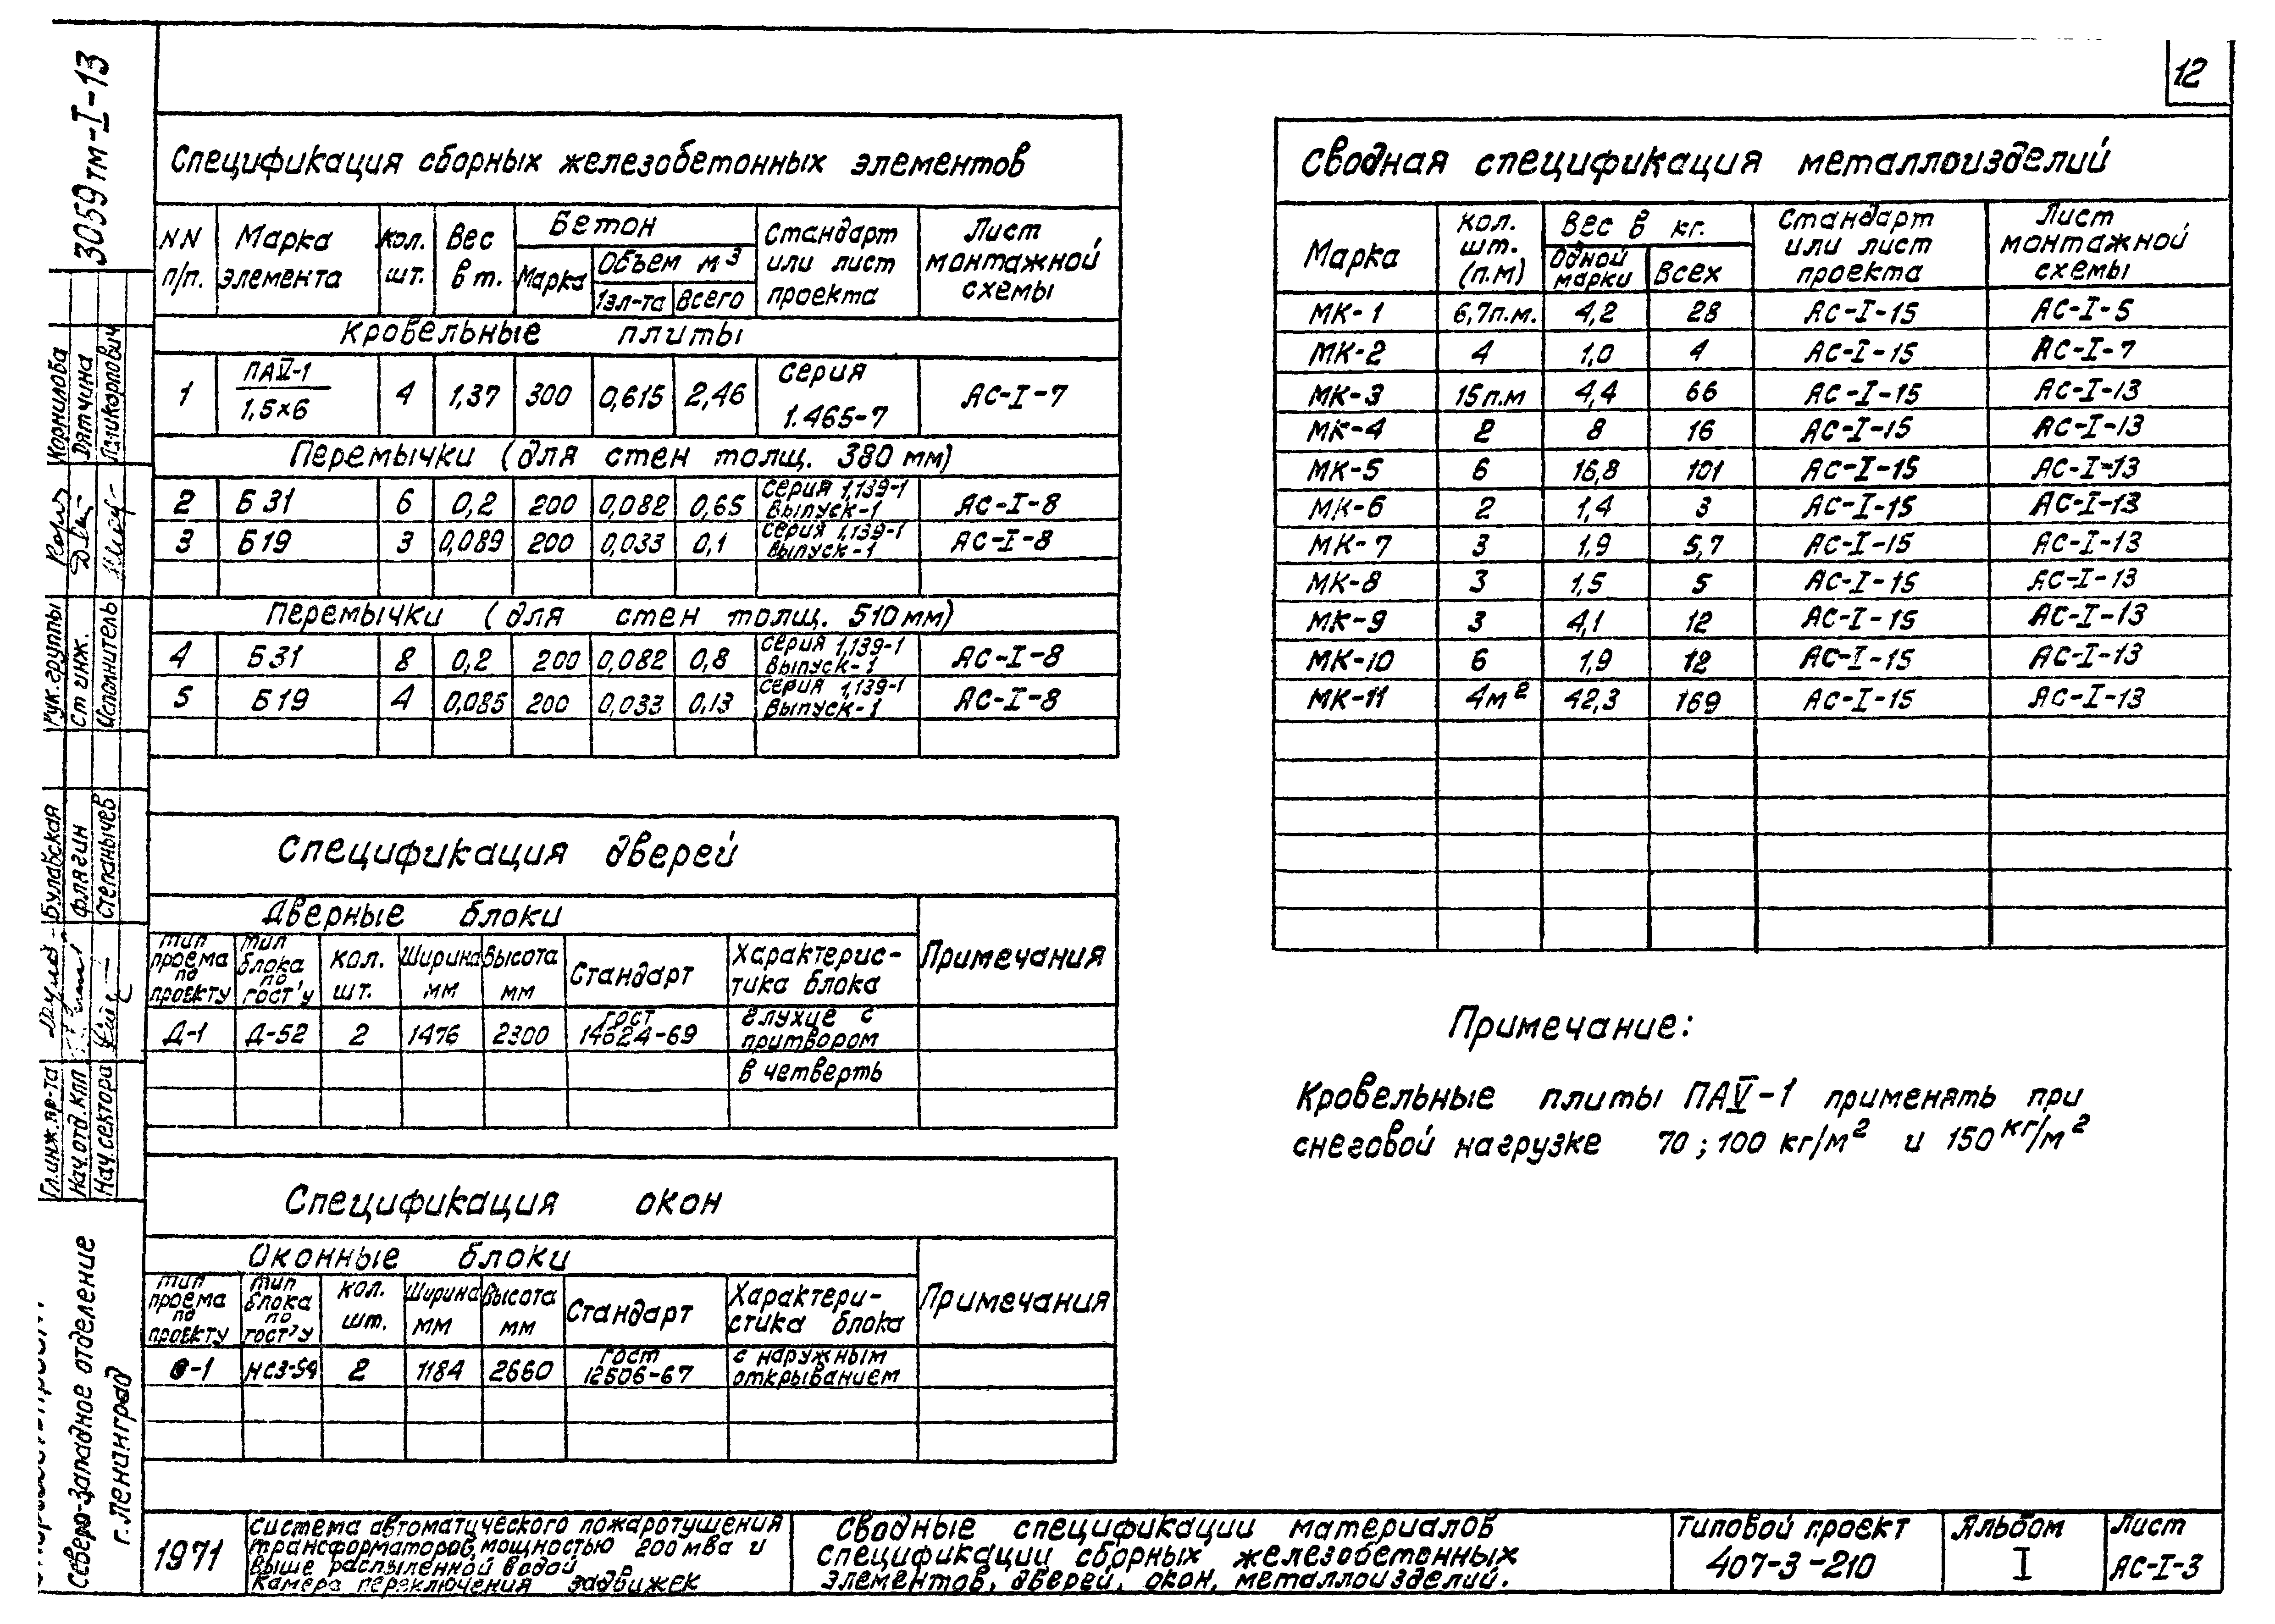 12
3059тм-I-13
Спецификация сборных железобетонных элементов
NN п/п. | Марка элемента | кол. шт. | Вес в т. | Бетон | Стандарт или лист проекта | Лист монтажной схемы
Марка | Объем м3
1эл-та | Всего
Кровельные плиты
1 | ПАV-1 1,5х6 | 4 | 1,37 | 300 | 0,615 | 2,46 | серия 1.465-7 | АС-I-7
Перемычки (для стен толщ. 380 мм)
2 | Б 31 | 6 | 0,2 | 200 | 0,082 | 0,65 | серия 1,139-1 выпуск-1 | АС-I-8
3 | Б 19 | 3 | 0,089 | 200 | 0,033 | 0,1 | серия 1,139-1 выпуск-1 | АС-I-8
Перемычки (для стен толщ. 510 мм)
4 | Б 31 | 8 | 0,2 | 200 | 0,082 | 0,8 | серия 1,139-1 выпуск-1 | АС-I-8
5 | Б 19 | 4 | 0,085 | 200 | 0,033 | 0,13 | серия 1,139-1 выпуск-1 | АС-I-8
Спецификация дверей
Дверные блоки | Примечания
тип проема по проекту | тип блока по гост'у | кол. шт. | Ширина мм | Высота мм | Стандарт | Характеристика блока
Д-1 | Д-52 | 2 | 1476 | 2300 | гост 14624-69 | глухие с притвором
в четверть
Спецификация окон
Оконные блоки | Примечания
тип проема по проекту | тип блока по гост'у | кол. шт. | Ширина мм | Высота мм | Стандарт | Характеристика блока
О-1 | НС3-54 | 2 | 1184 | 2660 | гост 12506-67 | с наружным открыванием
Сводная спецификация металлоизделий
Марка | кол. шт. (п.м) | Вес в кг. | Стандарт или лист проекта | Лист монтажной схемы
Одной марки | Всех
МК-1 | 6,7п.м. | 4,2 | 28 | АС-I-15 | АС-I-5
МК-2 | 4 | 1,0 | 4 | АС-I-15 | АС-I-7
МК-3 | 15п.м | 4,4 | 66 | АС-I-15 | АС-I-13
МК-4 | 2 | 8 | 16 | АС-I-15 | АС-I-13
МК-5 | 6 | 16,8 | 101 | АС-I-15 | АС-I-13
МК-6 | 2 | 1,4 | 3 | АС-I-15 | АС-I-13
МК-7 | 3 | 1,9 | 5,7 | АС-I-15 | АС-I-13
МК-8 | 3 | 1,5 | 5 | АС-I-15 | АС-I-13
МК-9 | 3 | 4,1 | 12 | АС-I-15 | АС-I-13
МК-10 | 6 | 1,9 | 12 | АС-I-15 | АС-I-13
МК-11 | 4м2 | 42,3 | 169 | АС-I-15 | АС-I-13
Примечание:
Кровельные плиты ПАV-1 применять при
снеговой нагрузке 70; 100 кг/м2 и 150 кг/м2
Рук. группы Корнилова
Ст инж. Дятчина
Исполнитель
Гл.инж.пр-та Булавская
Нач.отд.КПП Флягин
Нач.сектора Степанычев
Северо-западное отделение
г.Ленинград
1971
система автоматического пожаротушения
трансформаторов, мощностью 200 мва и
выше распыленной водой
Камера переключения задвижек
Сводные спецификации материалов
спецификации сборных железобетонных
элементов, дверей, окон, металлоизделий.
Типовой проект
407-3-210
Альбом
I
Лист
АС-I-3